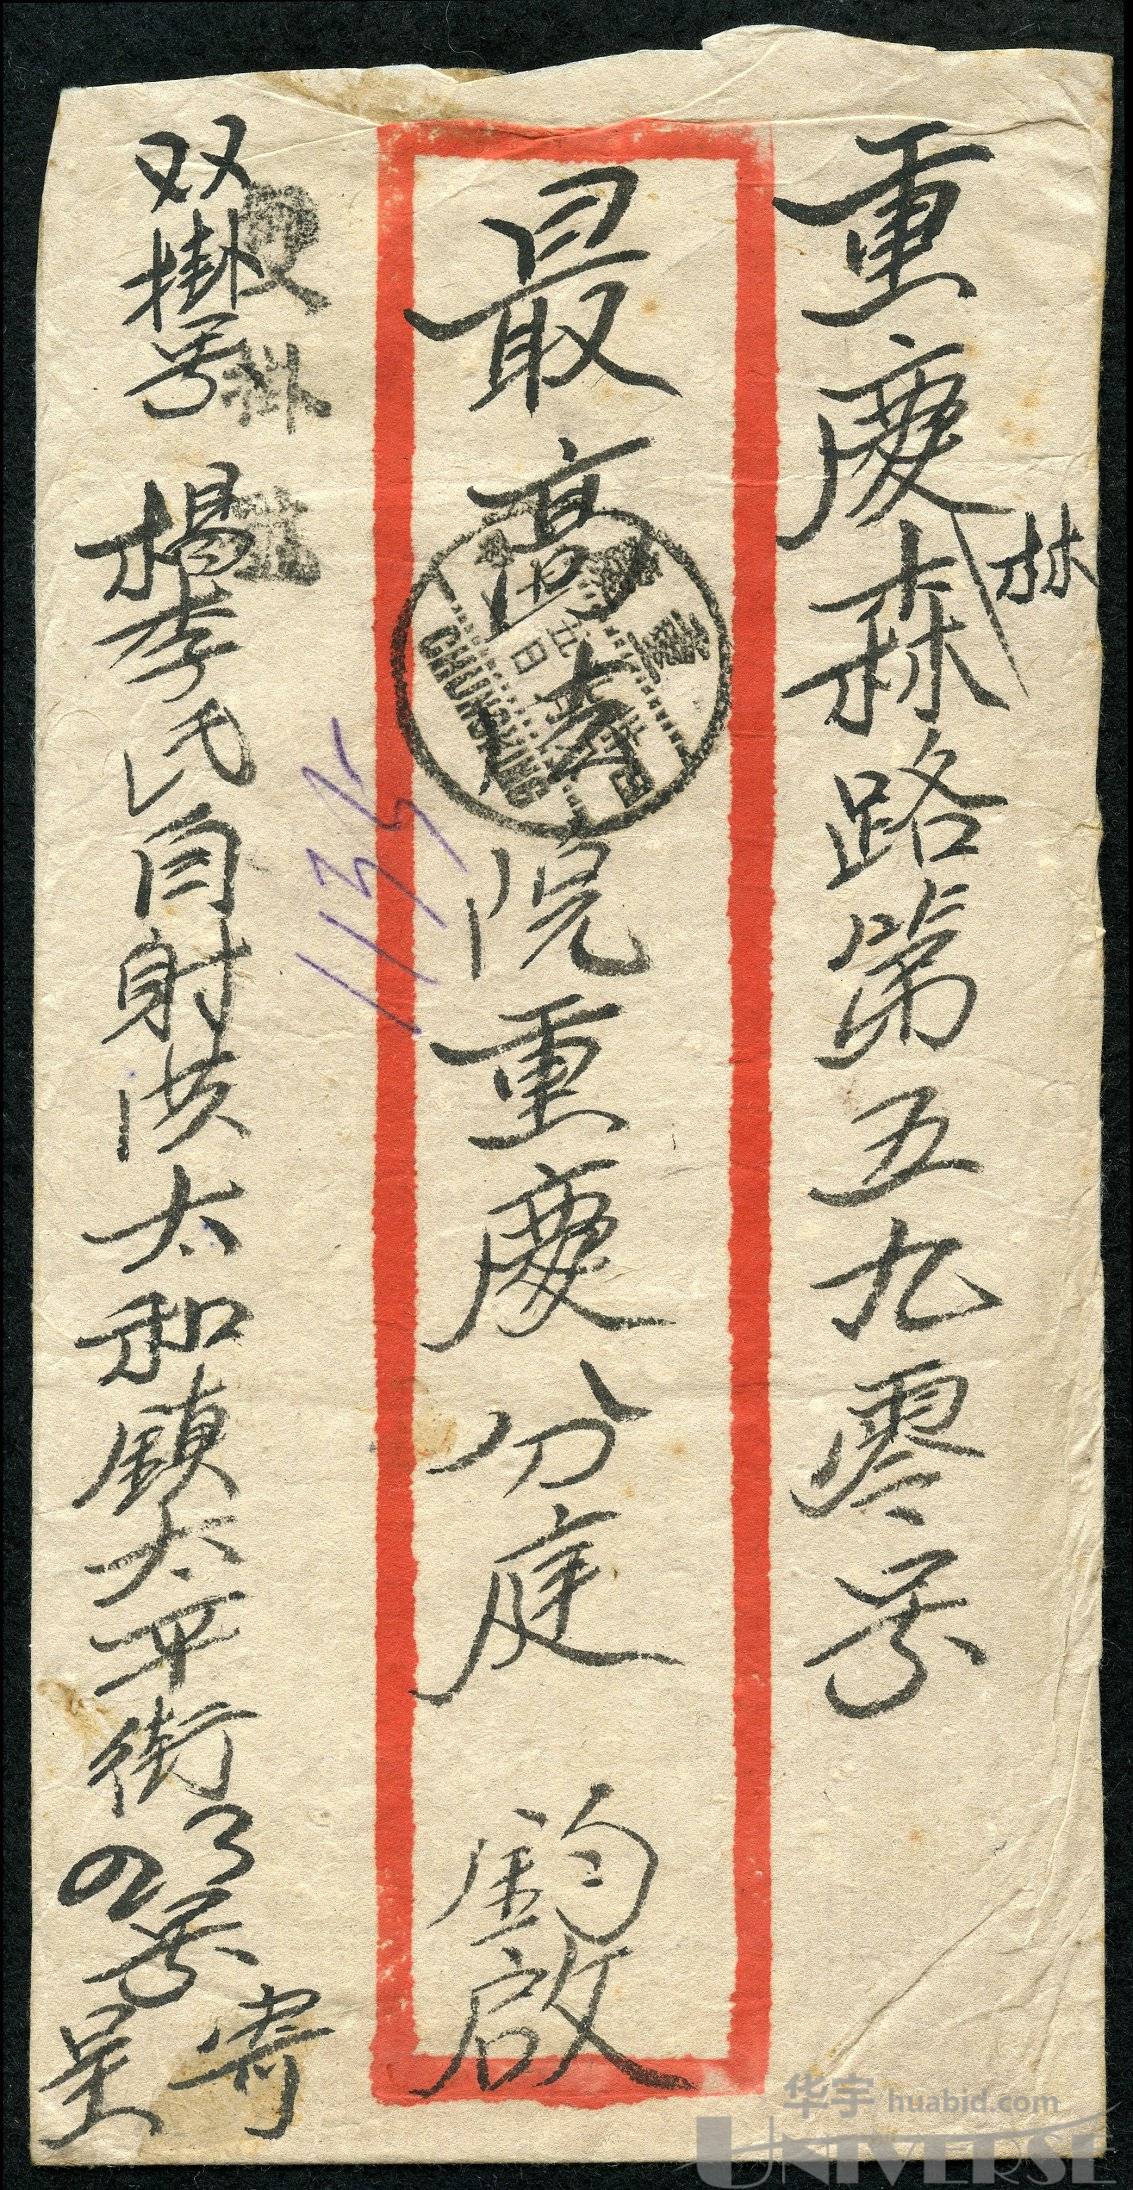 重慶森路第五九零号
林
最高法院重慶分庭 鈞啟
双掛号 楊李氏自射洪太和鎮太平街
号
寄
呈
双掛号
CHUNGKING
重慶
日
1135
华宇 huabid.com
UNIVERSE